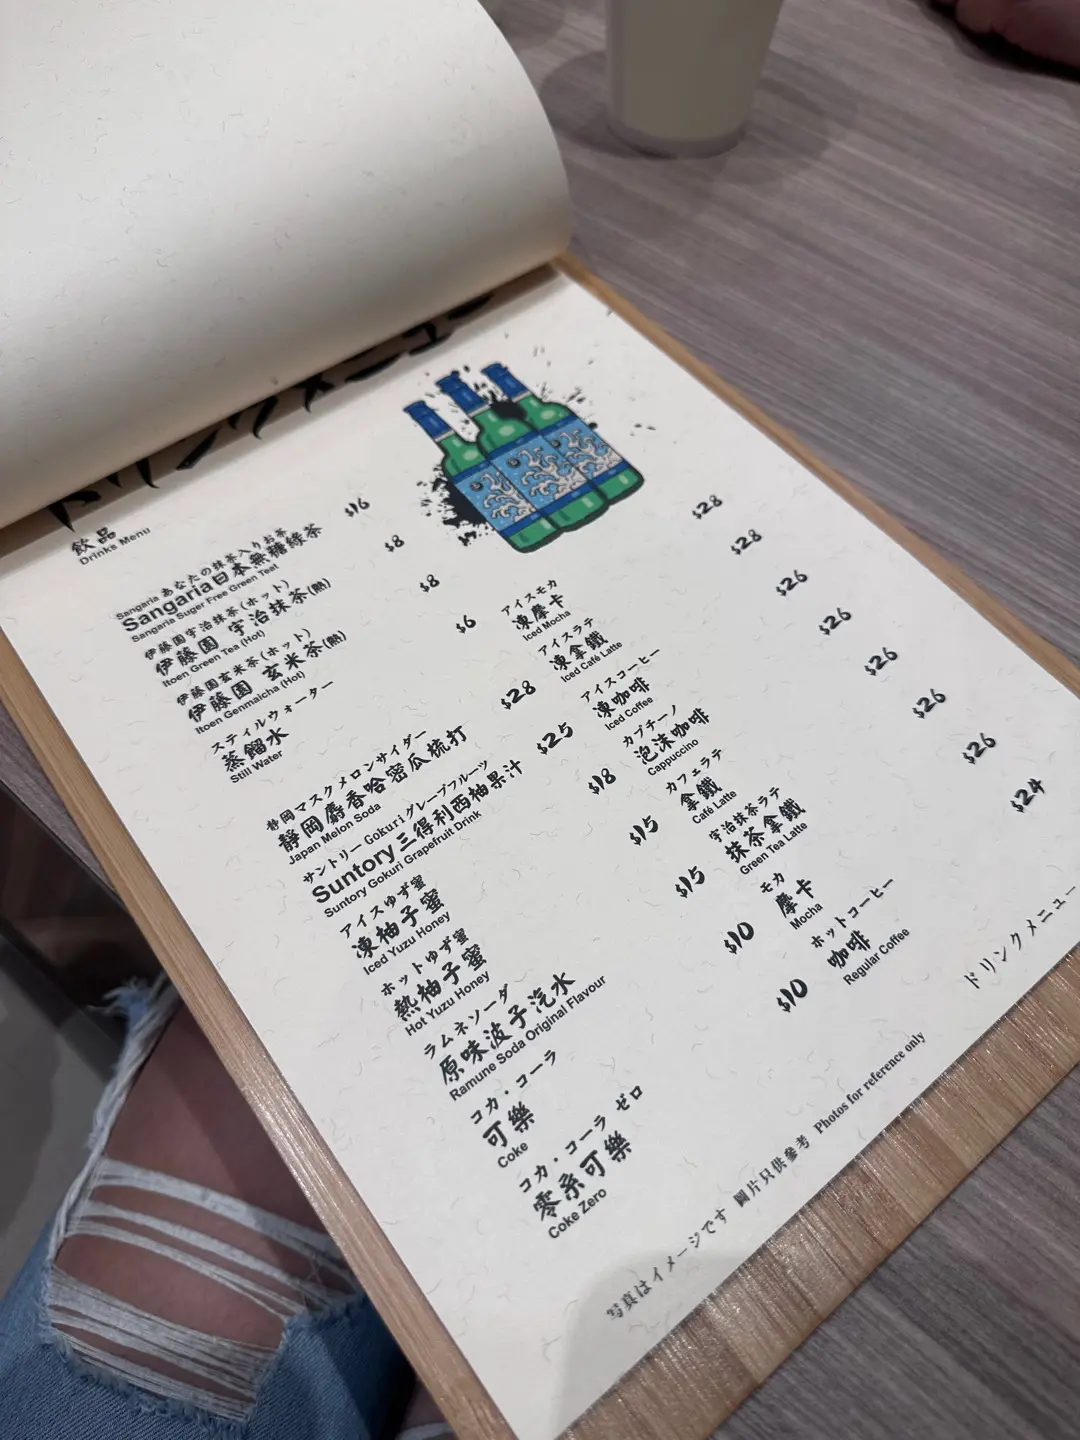 飲品
Drinks Menu
Sangaria あなたの抹茶入りお茶
Sangaria日本無糖綠茶 $16
Sangaria Suger Free Green Teat
伊藤園宇治抹茶(ホット)
伊藤園 宇治抹茶(熱) $8
Itoen Green Tea (Hot)
伊藤園玄米茶(ホット)
伊藤園 玄米茶(熱) $8
Itoen Genmaicha (Hot)
スティルウォーター
蒸餾水 $6
Still Water
静岡マスクメロンサイダー
靜岡麝香哈密瓜梳打 $28
Japan Melon Soda
サントリーGokuriグレープフルーツ
Suntory三得利西柚果汁 $25
Suntory Gokuri Grapefruit Drink
アイスゆず蜜
凍柚子蜜 $18
Iced Yuzu Honey
ホットゆず蜜
熱柚子蜜 $15
Hot Yuzu Honey
ラムネソーダ
原味波子汽水 $15
Ramune Soda Original Flavour
コカ・コーラ
可樂 $10
Coke
コカ・コーラ ゼロ
零系可樂 $10
Coke Zero
アイスモカ
凍摩卡 $28
Iced Mocha
アイスラテ
凍拿鐵 $28
Iced Café Latte
アイスコーヒー
凍咖啡 $26
Iced Coffee
カプチーノ
泡沫咖啡 $26
Cappuccino
カフェラテ
拿鐵 $26
Café Latte
宇治抹茶ラテ
抹茶拿鐵 $26
Green Tea Latte
モカ
摩卡 $26
Mocha
ホットコーヒー
咖啡 $24
Regular Coffee
ドリンクメニュー
写真はイメージです 圖片只供參考 Photos for reference only